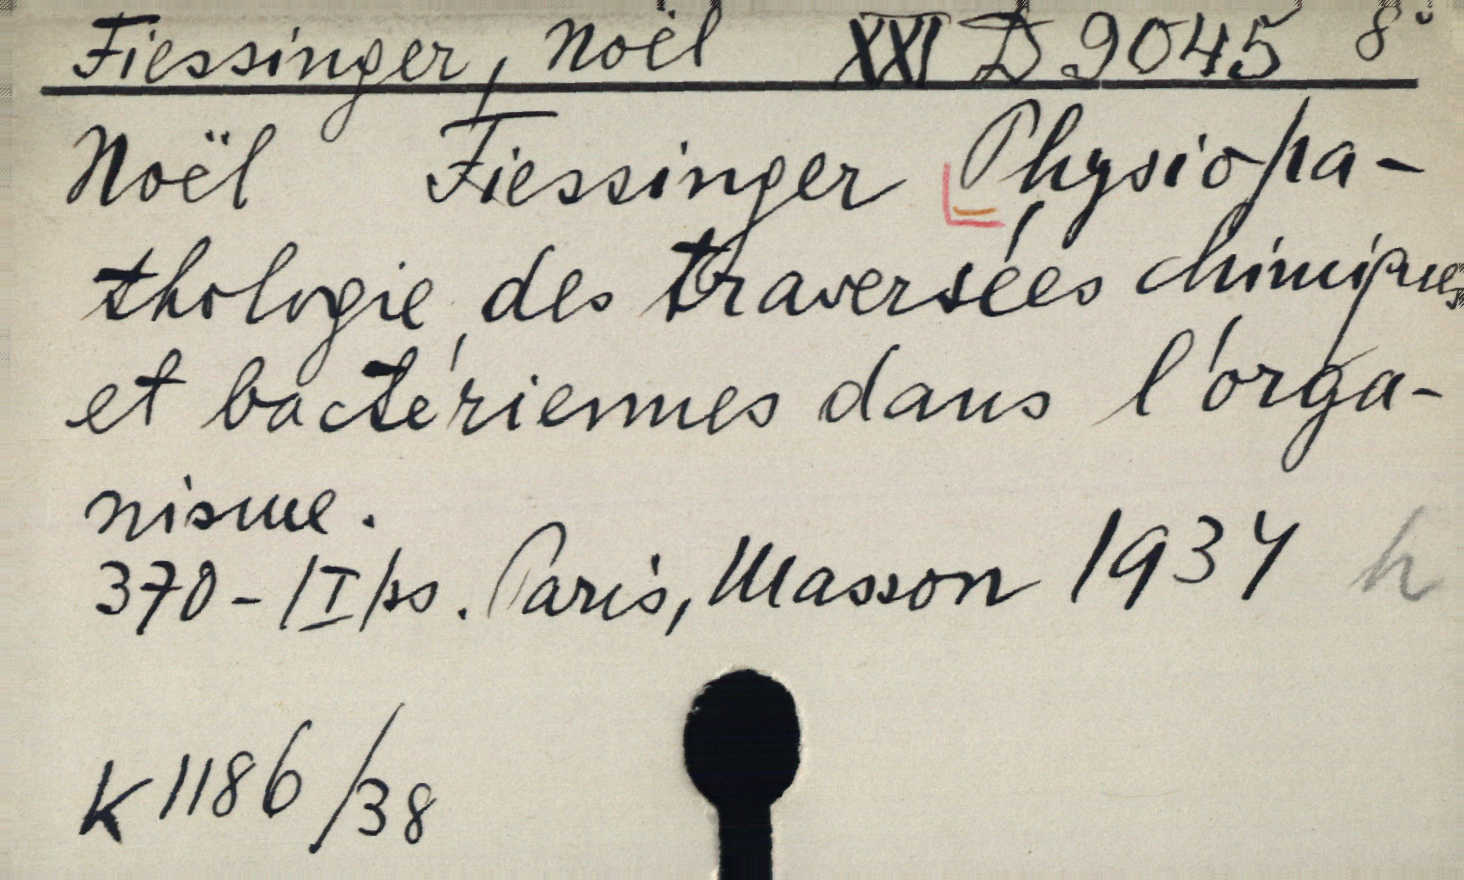 Fiessinger, Noël XXI D 9045 8°
Noël Fiessinger Physiopa-
thologie des traversées chimiques
et bactériennes dans l'orga-
nisme.
370-/I/ps. Paris, Masson 1937 h
K 1186/38